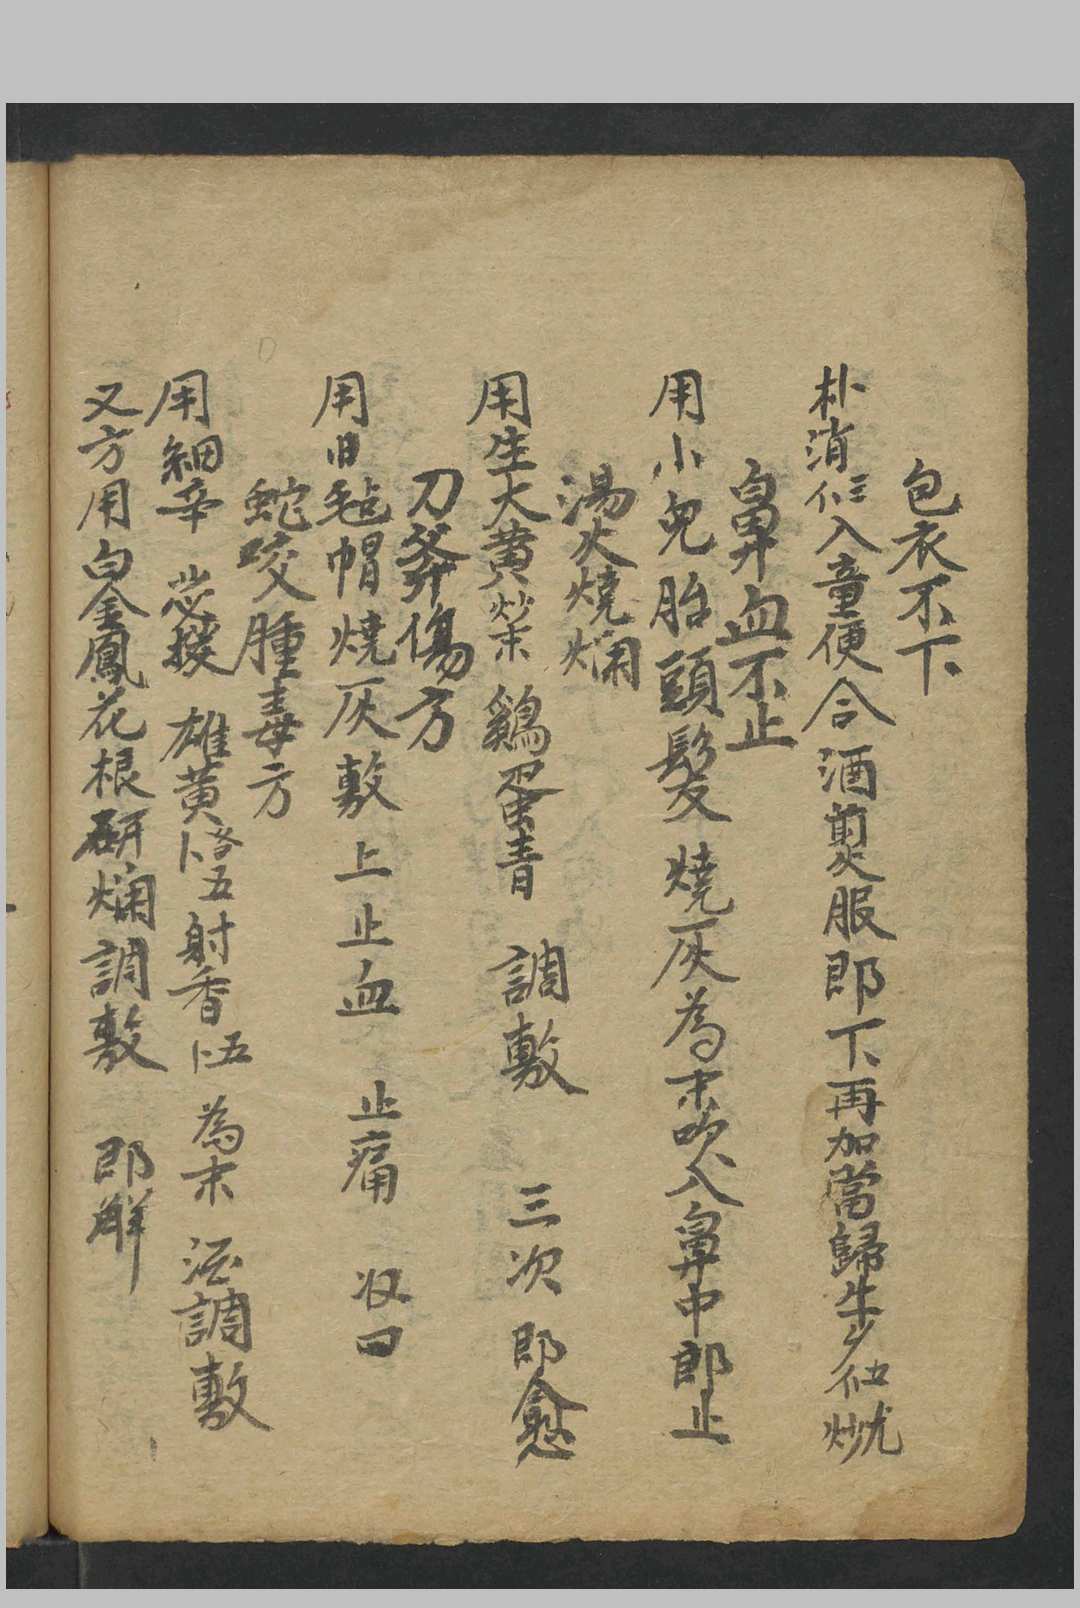 包衣不下
朴消三入童便合酒煎服即下再加當歸牛夕五炒尤
鼻血不止
用小兒胎頭髮燒灰為末吹入鼻中郎止
湯火燒爛
用生大黄炒末鷄蛋青調敷三次即愈
刀斧傷方
用旧毡帽燒灰敷上止血止痛收口
蛇咬腫毒方
用細辛雄黄各五射香五為末酒調敷
又方用白金鳳花根研爛調敷即解